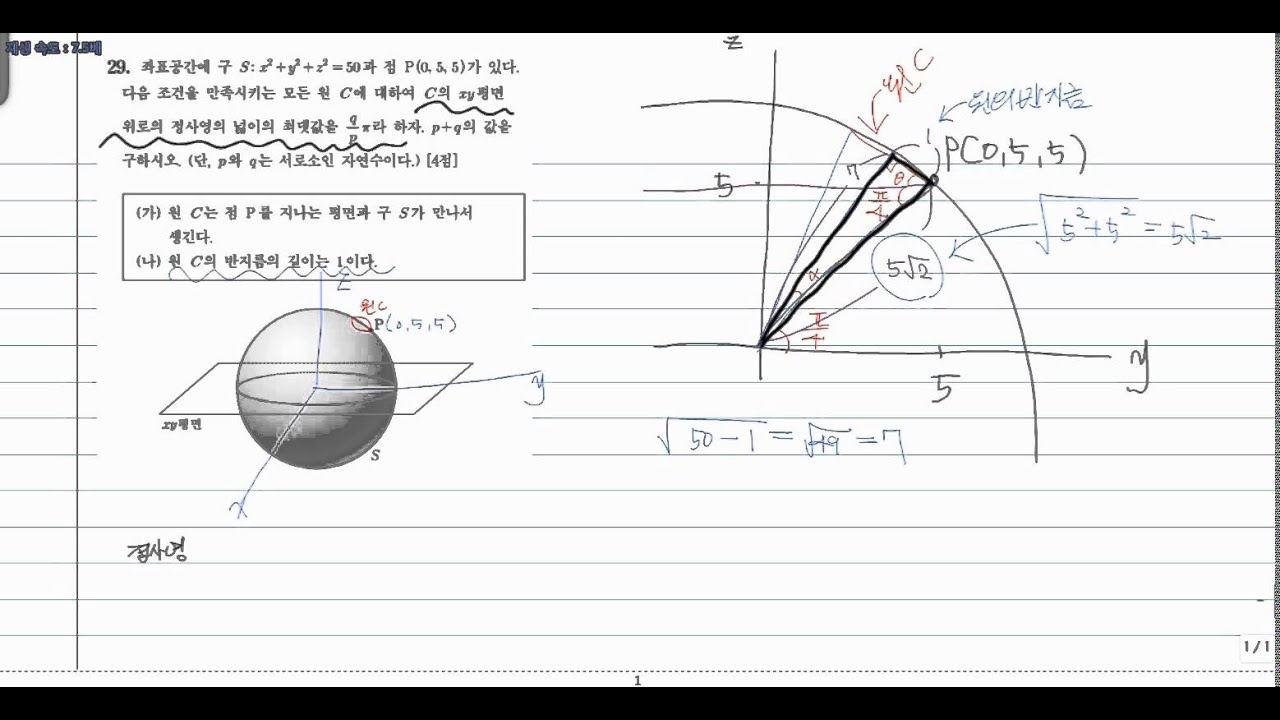 재생 속도 : 7.5배
29. 좌표공간에 구 S: x²+y²+z²=50과 점 P(0, 5, 5)가 있다.
다음 조건을 만족시키는 모든 원 C에 대하여 C의 xy평면
위로의 정사영의 넓이의 최댓값을 q/p π라 하자. p+q의 값을
구하시오. (단, p와 q는 서로소인 자연수이다.) [4점]
(가) 원 C는 점 P를 지나는 평면과 구 S가 만나서
생긴다.
(나) 원 C의 반지름의 길이는 1이다.
z
원C
P(0,5,5)
y
xy평면
S
x
정사영
z
원 C
원의 반지름
1
P(0,5,5)
7
θ
5
π/4
√5²+5² = 5√2
5√2
α
π/4
y
5
√50-1 = √49 = 7
1/1
1